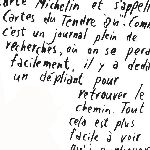 arte Michelin et s'appell
Cartes du Tendre Qu'. Comm
c'est un journal plein de
recherches, où on se perd
facilement, il y a dedd
un dépliant pour
retrouver le
chemin. Tout
cela est plus
facile à voir